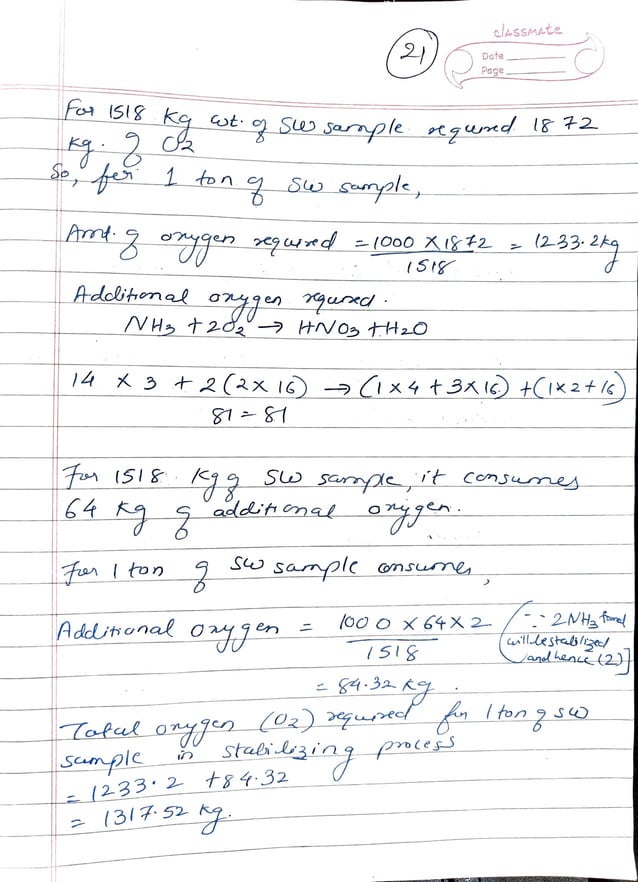 classmate
Date
Page
21
For 1518 kg wt. of SW sample required 1872
kg. of O2
So, for 1 ton of SW sample,
Amt. of oxygen required = 1000 X 1872 = 1233.2kg
1518
Additional oxygen required.
NH3 + 2O2 → HNO3 + H2O
14 x 3 + 2(2x 16) → (1x4 + 3x16) + (1x2+16)
81 = 81
For 1518 Kg of SW sample, it consumes
64 kg of additional oxygen.
For 1 ton of SW sample consumes,
Additional oxygen = 1000 X 64 X 2
1518
(∵ 2NH3 formed
will be stabilized
and hence (2)]
= 84.32 kg.
Total oxygen (O2) required for 1 ton of SW
sample in stabilizing process
= 1233.2 + 84.32
= 1317.52 kg.